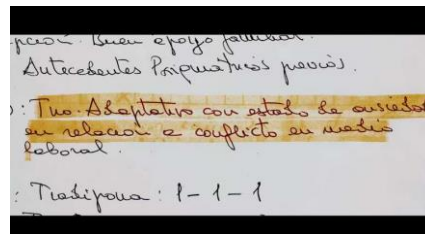 pción. Buen apoyo familiar.
Antecedentes Psiquiátricos previos.
: Tno Adaptativo con estado de ansiedad
en relación a conflicto en medio
laboral.
: 1-1-1